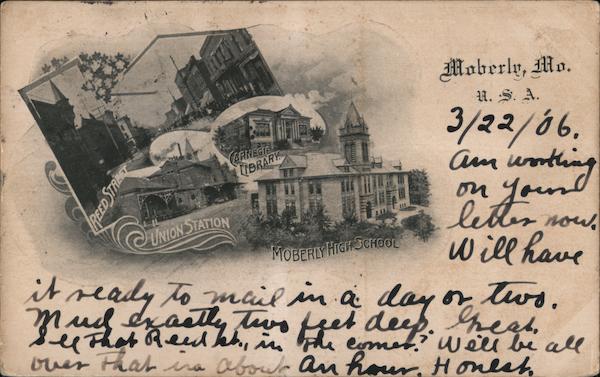 Moberly, Mo.
U. S. A.
3/22/06.
Am working
on your
letter now.
Will have
it ready to mail in a day or two.
Mud exactly two feet deep. Great.
See that Reed st., in the corner? We'll be all
over that in about an hour. Honest.
REED STREET
UNION STATION
CARNEGIE
LIBRARY
MOBERLY HIGH SCHOOL